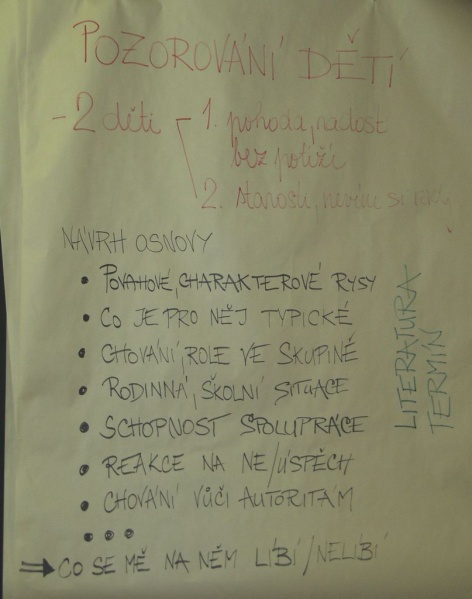 POZOROVÁNÍ DĚTÍ
- 2 děti
1. pohoda, radost
bez potíží
2. starosti, nevíme si rady
NÁVRH OSNOVY
• POVAHOVÉ, CHARAKTEROVÉ RYSY
• CO JE PRO NĚJ TYPICKÉ
• CHOVÁNÍ, ROLE VE SKUPINĚ
• RODINNÁ, ŠKOLNÍ SITUACE
• SCHOPNOST SPOLUPRÁCE
• REAKCE NA NE/ÚSPĚCH
• CHOVÁNÍ VŮČI AUTORITÁM
• • •
⇒ CO SE MĚ NA NĚM LÍBÍ/NELÍBÍ
LITERATURA
TERMÍN